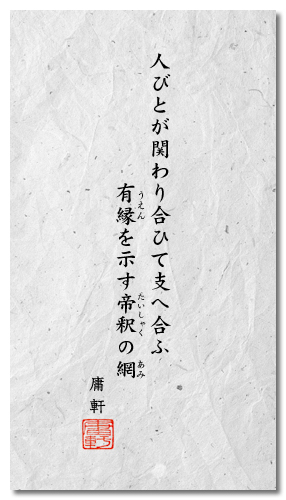 人びとが関わり合ひて支へ合ふ
有縁を示す帝釈の網
うえん
たいしゃく
あみ
庸軒
庸軒